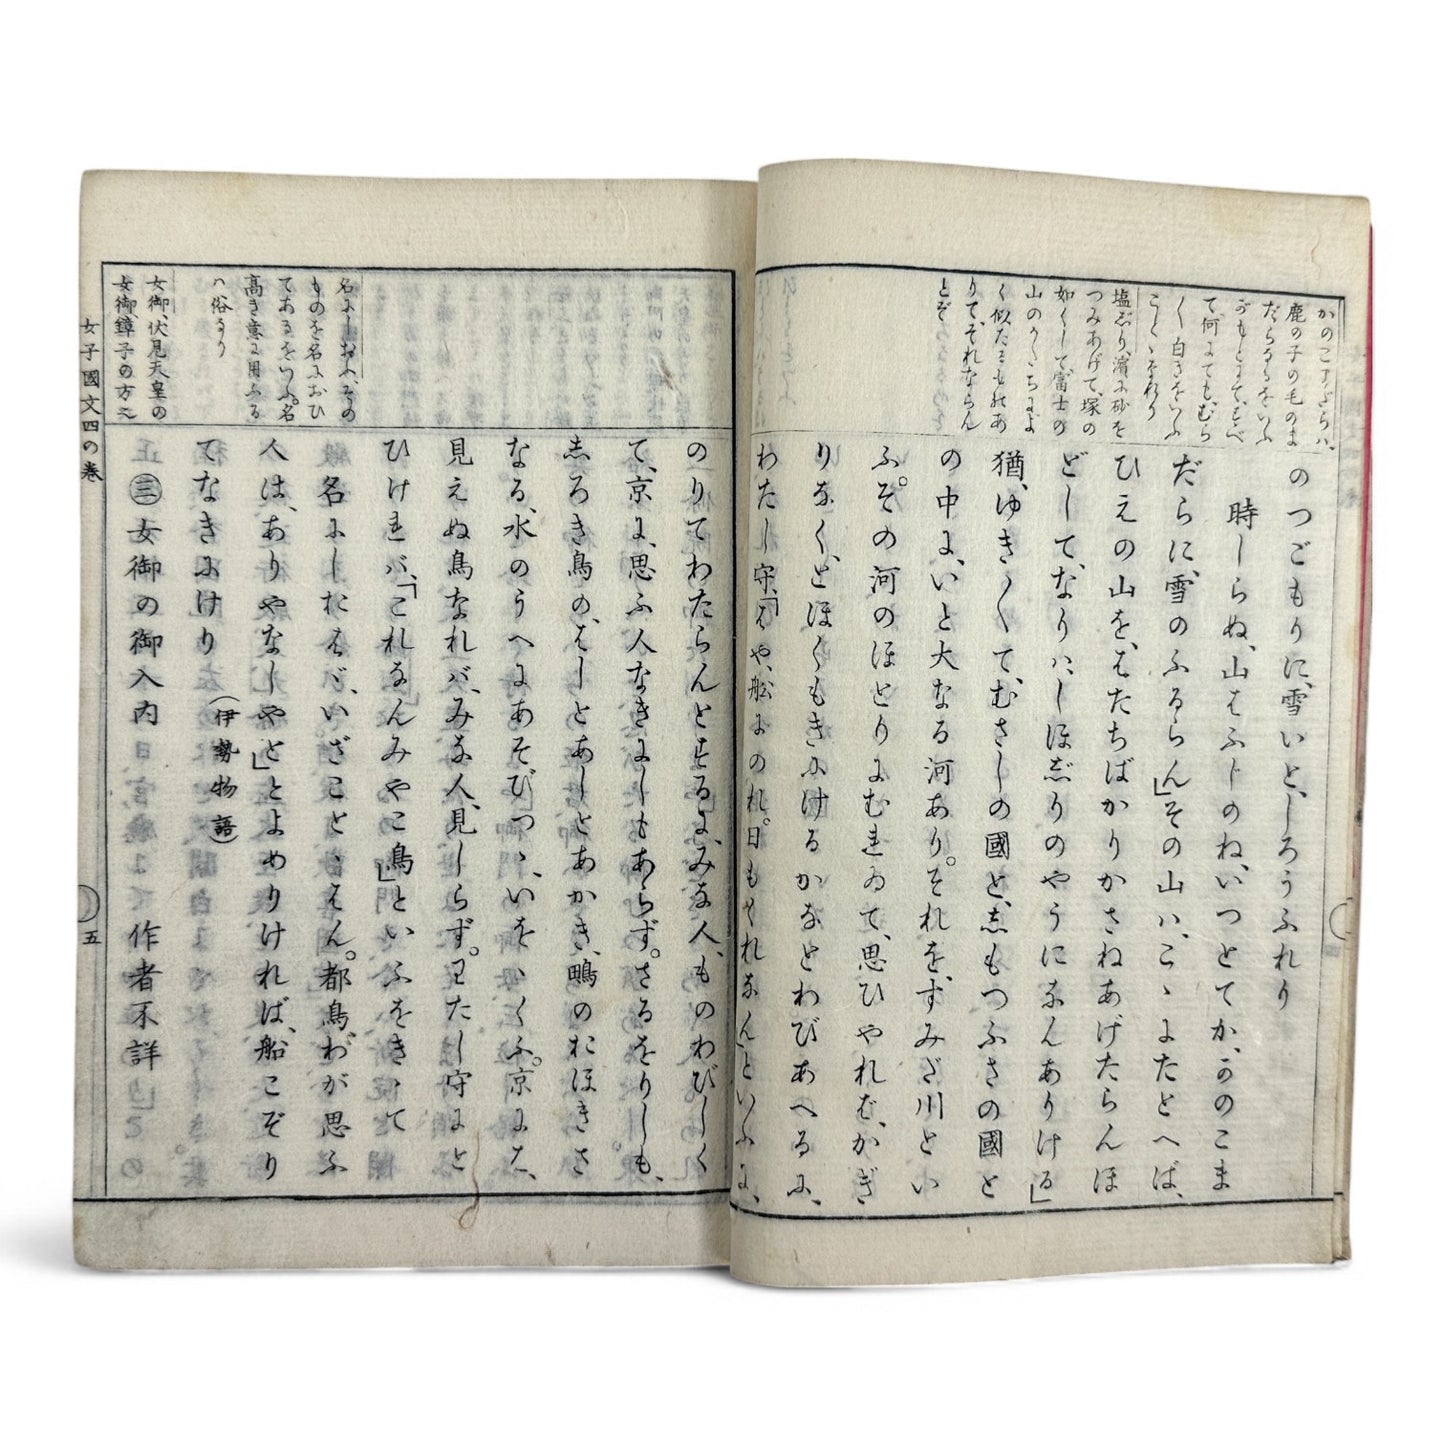 かのこまだらハ、
鹿の子の毛のま
だらなるをいふ
がもとにて、すべ
て何にても、むら
〳〵白きをいふ
ことゝなれり
塩じり、濱に砂を
つみあげて、塚の
如くして富士の
山のかたちによ
く似たるものあ
りて、それならん
とぞ
のつごもりに、雪いと、しろうふれり
時しらぬ、山はふじのね、いつとてか、かのこま
だらに、雪のふるらん」その山ハ、こゝにたとへば、
ひえの山を、はたちばかりかさねあげたらんほ
どして、なりハ、しほじりのやうになんありける」
猶、ゆき〳〵て、むさしの國と、志もつふさの國と
の中に、いと大なる河あり。それを、すみだ川とい
ふ。その河のほとりにむれゐて、思ひやれば、かぎ
りなく、とほくもきにけるかなとわびあへるに、
わたし守、「はや、船にのれ。日もくれなん」といふに、
のりてわたらんとするに、みな人、ものわびしく
て、京に、思ふ人なきにしもあらず。さるをりしも、
志ろき鳥の、はしとあしとあかき、鴫のおほきさ
なる、水のうへにあそびつゝ、いをゝくふ。京にハ、
見えぬ鳥なれバ、みな人、見しらず。わたし守にと
ひけれバ、「これなんみやこ鳥」といふをきゝて
名にしおはバ、いざことゝはん。都鳥、わが思ふ
人は、ありやなしやと」とよめりければ、船こぞり
てなきにけり
（伊勢物語）
㊂女御の御入内日 作者不詳
名にしおふ、その
ものを名におひ
てあるをいふ。名
高き意に用ふる
ハ俗なり
女御、伏見天皇の
女御鏱子の方之
女子國文四の巻
五